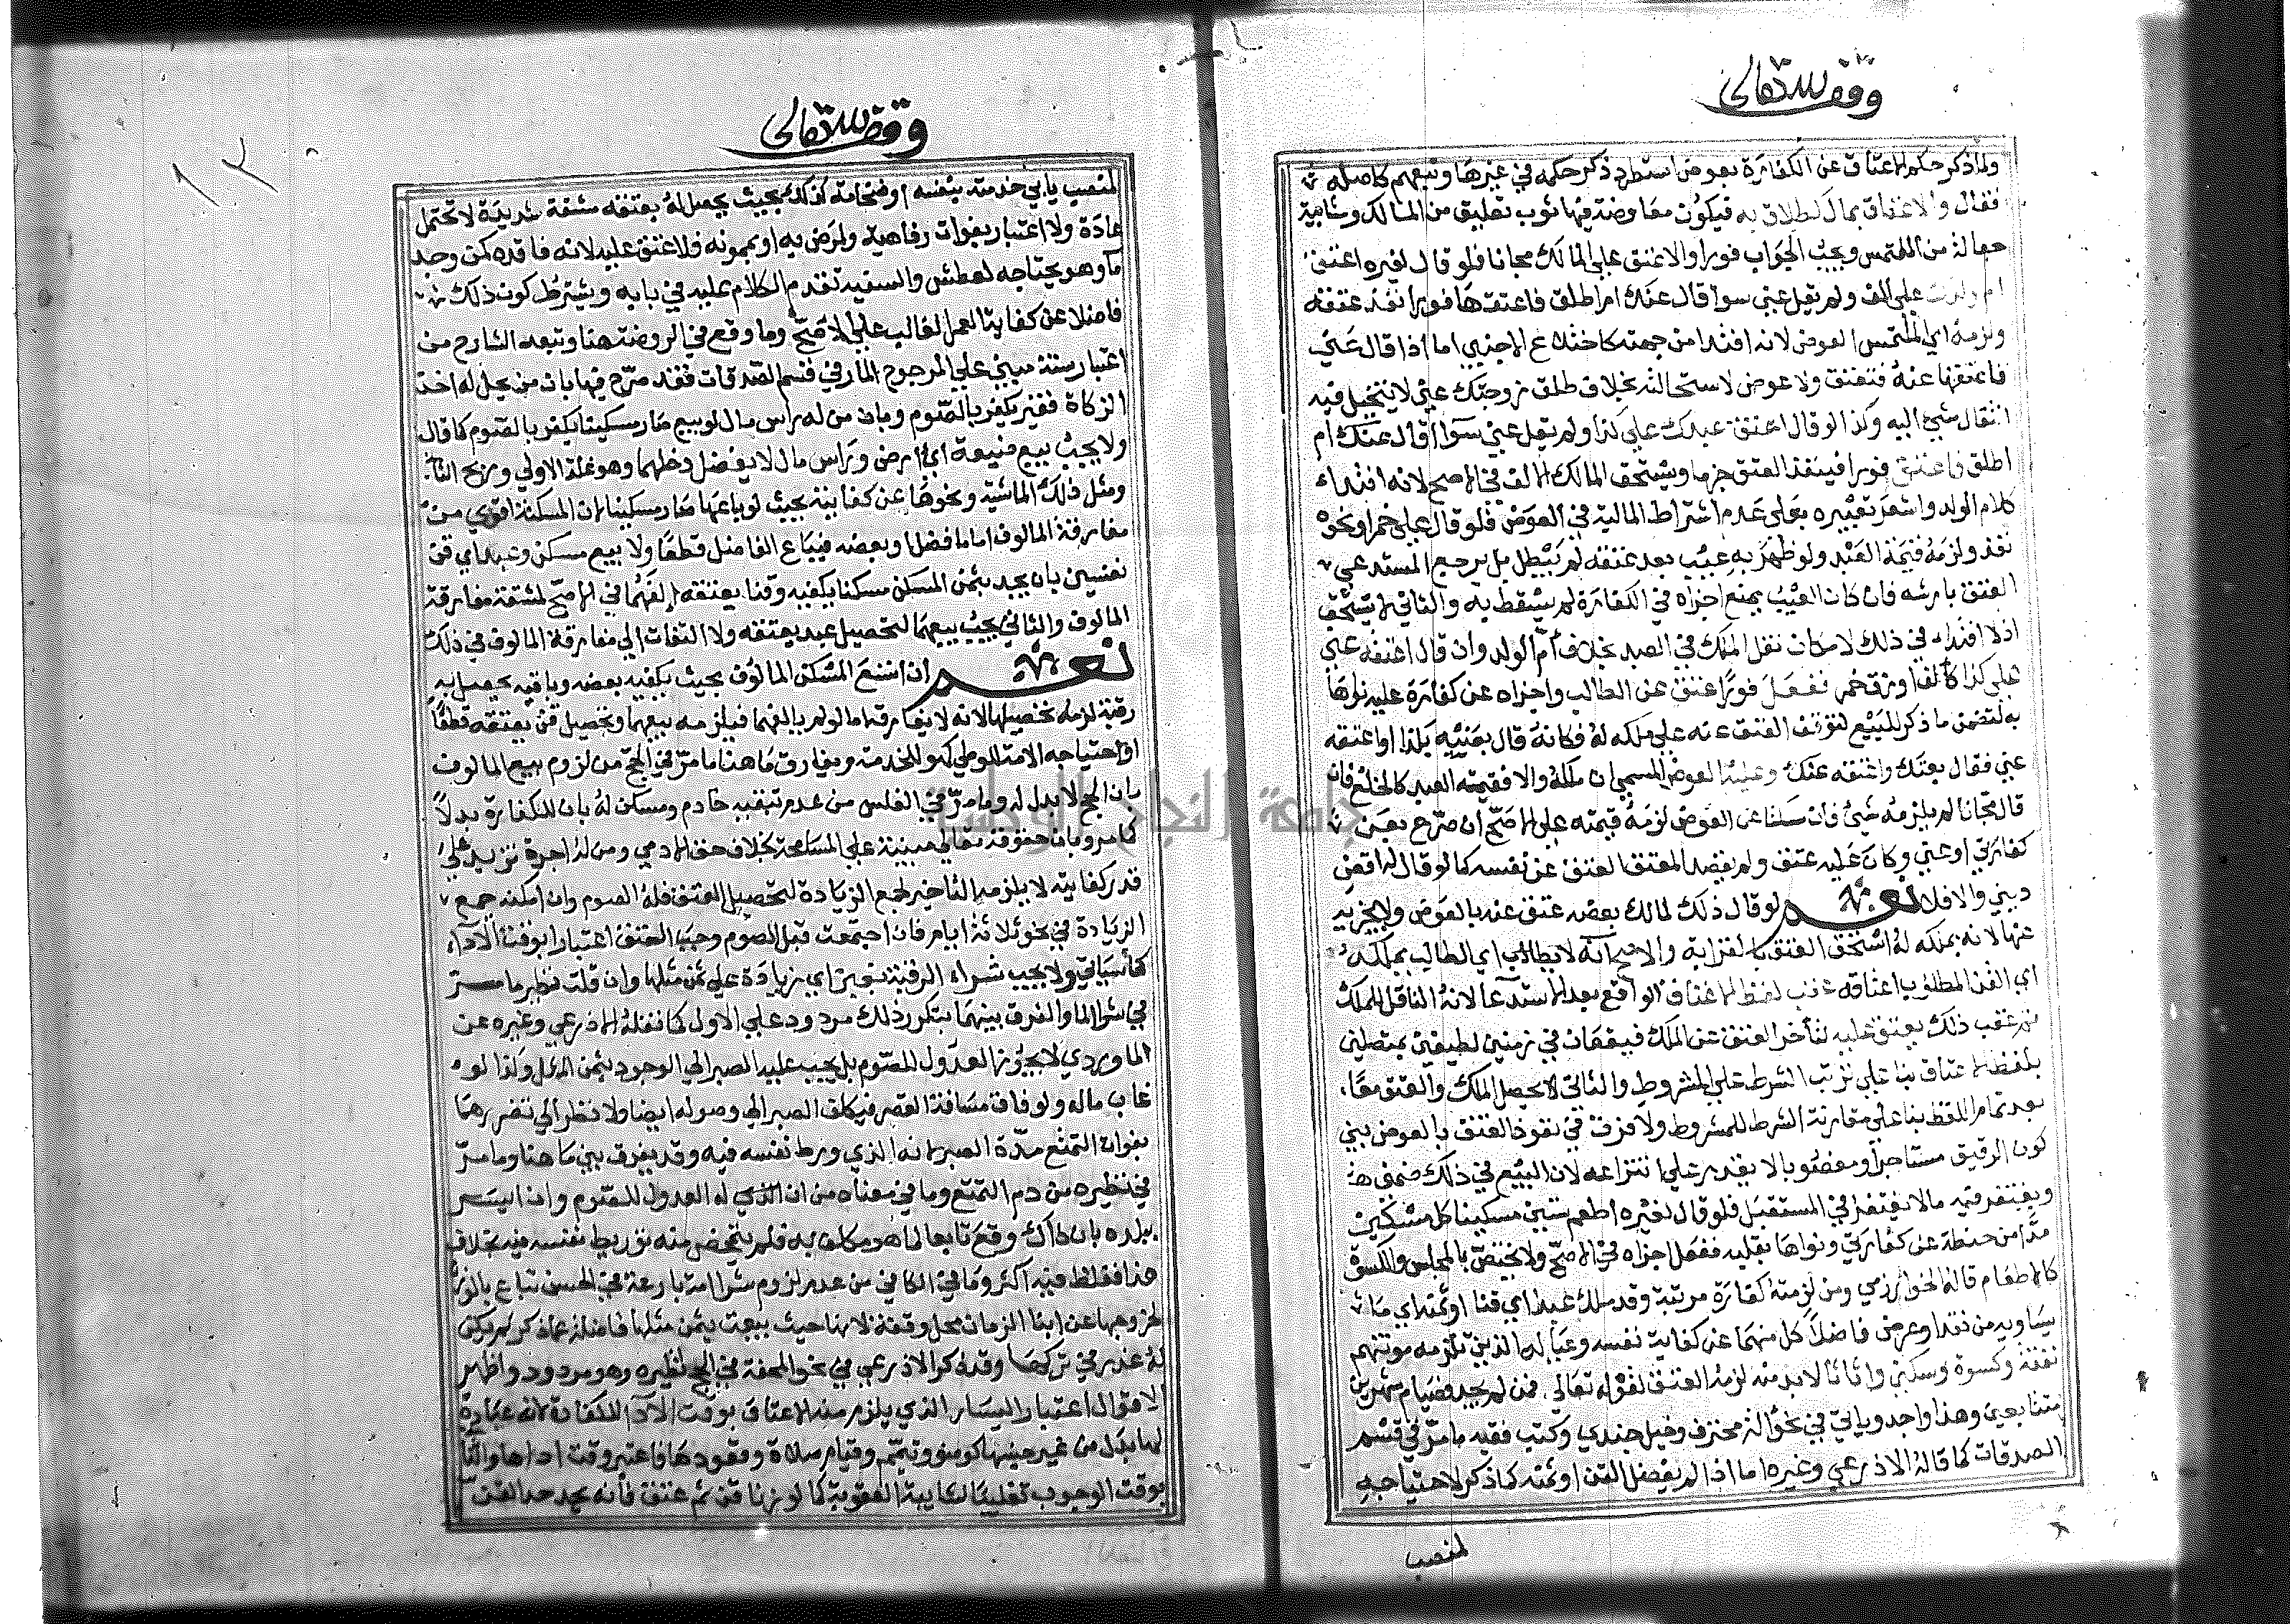 وقف لله تعالى
ولما ذكر حكم الاعتاق عن الكفارة بعوض استطرد ذكر حكمه في غيرها وتبعهم كاصله
فقال والاعتاق بمال كطلاق به فيكون معاوضة فيها شوب تعليق من المالك وشايبة
جعالة من الملتمس ويجب الجواب فورا والا عتق علي المالك مجانا فلو قال لغيره اعتق
ام ولدك علي الف ولم يقل عني سوا قال عنك ام اطلق فاعتقها فورا نفذ عتقه
ولزمه اي الملتمس العوض لانه افتدا من جهته كاختلاع الاجنبي اما اذا قال عني
فاعتقها عنه فتعتق ولا عوض لاستحالته بخلاف طلق زوجتك عني لا يتخيل فيه
انتقال شيء اليه وكذا لو قال اعتق عبدك علي كذا ولم يقل عني سوا قال عنك ام
اطلق فاعتق فورا فينفذ العتق جزما ويستحق المالك الالف في الاصح لانه افتداء
كلام الولد واشعر تعبيره بعلى عدم اشتراط المالية في العوض فلو قال علي خمر او نحوه
نفذ ولزمه قيمة العبد ولو ظهر به عيب بعد عتقه لم يبطل بل يرجع المستدعي
العتق بارشه فان كان العيب يمنع اجزاه في الكفارة لم يسقط به والثاني لا يستحق
اذ لا افتداء في ذلك لامكان نقل الملك في العبد بخلاف ام الولد وان قال اعتقه عني
علي كذا كالف او زق خمر ففعل فورا عتق عن الطالب واجزاه عن كفارة عليه نواها
به لتضمن ما ذكر للبيع لتوقف العتق عنه علي ملكه له فكانه قال بعنيه بكذا او اعتقه
عني فقال بعتك واعتقه عنك وعليه العوض المسمى ان ملكه والا فقيمة العبد كالخلع فان
قال مجانا لم يلزمه شيء وان سكتا عن العوض لزمه قيمته علي الاصح ان صرح بعن
كفارتي او عني وكان عليه عتق ولم يقصد المعتق العتق عن نفسه كما لو قال له اقض
ديني والا فلا نعم لو قال ذلك لمالك بعضه عتق عنه بالعوض ولا يجزيه
عنها لانه بملكه له استحق العتق بالقرابة والاصح انه لا يطالبه اي الطالب بملكه
اي القن المطلوب اعتاقه عقب لفظ الاعتاق الواقع بعد الاستدعا لانه الناقل للملك
ثم عقب ذلك يعتق عليه لتأخر العتق عن الملك فيقعان في زمنين لطيفين متصلين
بلفظ الاعتاق بنا علي ترتب الشرط علي المشروط والثاني لا يحصل الملك والعتق معا
بعد تمام اللفظ بنا علي مقارنة الشرط للمشروط ولا فرق في نفوذ العتق بالعوض بين
كون الرقيق مستاجرا ومغصوبا لا يقدر علي انتزاعه لان البيع في ذلك ضمني
ويغتفر فيه مالا يغتفر في المستقبل فلو قال لغيره اطعم ستين مسكينا كل مسكين
مدا من حنطة عن كفارتي ونواها بقلبه ففعل اجزاه في الاصح ولا يختص بالمجلس والكسوة
كالاطعام قاله الخوارزمي ومن لزمته كفارة مرتبة وقد ملك عبدا اي قنا او ثمنه اي ما
يساويه من نقد او عرض فاضلا كل منهما عن كفاية نفسه وعياله الذين تلزمه مونتهم
نفقة وكسوة وسكني واثاثا لا بد منه لزمه العتق لقوله تعالى فمن لم يجد فصيام شهرين
متتابعين وهذا واجد وياتي في نحو الة محترف وخيل جندي وكتب فقيه ما مر في قسم
الصدقات كما قاله الاذرعي وغيره اما اذا لم يفضل القن او ثمنه كما ذكر لاحتياجه
لمنصب
وقف لله تعالى
١٢
لمنصب يابي خدمته بنفسه او ضخامة كذلك بحيث يحصل له بعتقه مشقة شديدة لا تحتمل
عادة ولا اعتبار بفوات رفاهية ولمرض به او بممونه فلا عتق عليه لانه فاقده كمن وجد
ما وهو يحتاجه لعطش والسفيه تقدم الكلام عليه في بابه ويشترط كون ذلك
فاضلا عن كفاية العمر الغالب علي الاصح وما وقع في الروضة هنا وتبعه الشارح من
اعتبار سنة مبني علي المرجوح المار في قسم الصدقات فقد صرح فيها بان من يحل له اخذ
الزكاة فقير يكفر بالصوم وبان من له راس مال لو بيع صار مسكينا يكفر بالصوم كما قال
ولا يجب بيع ضيعة اي ارض وراس مال لا يفضل دخلهما وهو غلة الاولي وربح الثاني
ومثل ذلك الماشية ونحوها عن كفايته بحيث لو باعها صار مسكينا لان المسكنة اقوي من
مفارقة المالوف اما ما فضل او بعضه فيباع الفاضل قطعا ولا بيع مسكن وعبد اي قن
نفيسين بان يجد بثمن المسكن مسكنا يكفيه وقنا يعتقه الفهما في الاصح لمشقة مفارقة
المالوف والثاني يجب بيعهما لتحصيل عبد يعتقه ولا التفات الي مفارقة المالوف في ذلك
نعم ان اتسع المسكن المالوف بحيث يكفيه بعضه وباقيه يحصل به
رقبة لزمه تحصيلها لانه لا يفارقه اما لو لم يالفهما فيلزمه بيعهما وتحصيل قن يعتقه قطعا
او احتياجه الامة للوطي كهو للخدمة ويفارق ما هنا ما مر في الحج من لزوم بيع المالوف
بان الحج لا بدل له وما مر في الفلس من عدم تبقية خادم ومسكن له بان للكفارة بدلا
كما مر وبان حقوقه تعالي مبنية علي المسامحة بخلاف حق الادمي ومن له اجرة تزيد علي
قدر كفايته لا يلزمه التاخير لجمع الزيادة لتحصيل العتق فله الصوم وان امكنه جمع
الزيادة في نحو ثلاثة ايام فان اجتمعت قبل الصوم وجب العتق اعتبارا بوقت الاداء
كما سياتي ولا يجب شراء الرقبة بغبن اي زيادة علي ثمن مثلها وان قلت نظير ما مر
في شرا الما والفرق بينهما بتكرر ذلك مردود علي الاول كما نقله الاذرعي وغيره عن
الماوردي لا يجوز العدول للصوم بل يجب عليه الصبر الي الوجود بثمن المثل وكذا لو
غاب ماله ولو فوق مسافة القصر فيكلف الصبر الي وصوله ايضا ولا نظر الي تضررهما
بفوات التمتع مدة الصبر لانه الذي ورط نفسه فيه وقد يفرق بين ما هنا وما مر
في نظيره من دم التمتع وما في معناه من ان الذي له العدول للصوم وان ايسر
ببلده بان ذاك وقع تابعا لما هو مكلف به فلم يتمحض منه توريط نفسه فيه بخلاف
هذا فغلظ فيه اكثر وما في الكافي من عدم لزوم شرا امة بارعة في الحسن تباع بالوزن
لخروجها عن ابنا الزمان محل وقفة لانها حيث بيعت بثمن مثلها فاضلة عما ذكر لم يكن
له عذر في تركها وقد ذكر الاذرعي في نحو المحفة في الحج نظيره وهو مردود واظهر
الاقوال اعتبار اليسار الذي يلزم منه الاعتاق بوقت الادا للكفارة لانه عبادة
لها بدل من غير جنسها كوضوء وتيمم وقيام صلاة وقعودها فاعتبر وقت اداءها والثاني
بوقت الوجوب تغليبا لشايبة العقوبة كما لو زنا قن ثم عتق فانه يحد حد القن
جامعة النجاح الوطنية